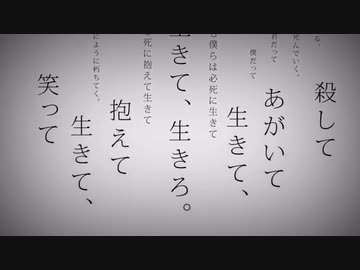 る。
殺して
死んでいく。
君だって
あがいて
僕だって
生きて、
も僕らは必死に生きて
生きて、生きろ。
死に抱えて生きて
抱えて
ように朽ちてく。
生きて、
笑って